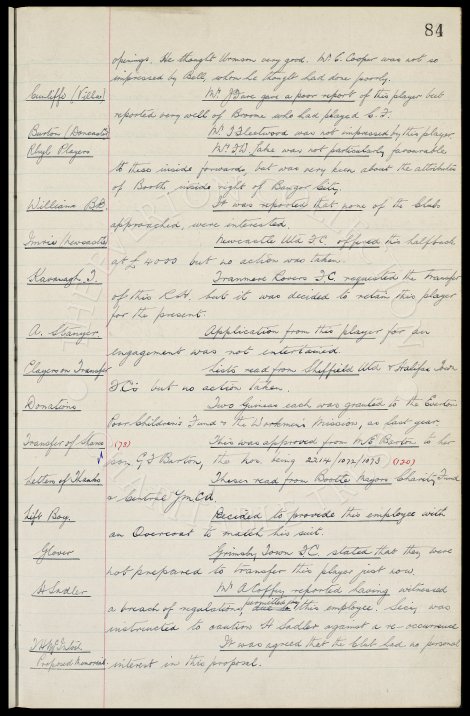 84
openings. He thought Urmson very good. Mr. C. Cooper was not so
impressed by Bell, whom he thought had done poorly.
Cunliffe (Villa) Mr. gave a poor report of this player but
reported very well of Broome who had played C.F.
Burton (Doncaster) Mr. T Fleetwood was not impressed by this player.
Rhyl Players Mr. Jake was not particularly favourable
to these inside forwards, but was very keen about the attributes
of Booth, inside right of Bangor City.
Williams It was reported that none of the Clubs
approached, were interested.
Imrie (Newcastle) Newcastle Utd F.C. offered this halfback
at £4000 but no action was taken.
Kavanagh. J. Tranmere Rovers F.C. requested the transfer
of this R.H. but it was decided to retain this player
for the present.
A. Application from this player for an
engagement was not entertained.
Players on Transfer Lists read from Sheffield Utd & Halifax Town
FC's but no action taken.
Donations Two Guineas each was granted to the Everton
Poor Children's Fund & the Workmen's Mission, as last year.
Transfer of Shares (73) This was approved from M E Burton to her
son, G S Burton, the nos. being 2214/1072/1073 (130)
Letters of Thanks These read from Bootle Mayors Charity Fund
& Central YmCA.
Lift Boy. Decided to provide this employee with
an Overcoat to match his suit.
Glover Grimsby Town FC. stated that they were
not prepared to transfer this player just now.
H Sadler Mr A Coffey reported having witnessed
a breach of regulations permitted by this employee. Secy, was
instructed to caution H Sadler against a re-occurrence
It was agreed that the Club had no personal
Proposed Memorial interest in this proposal.